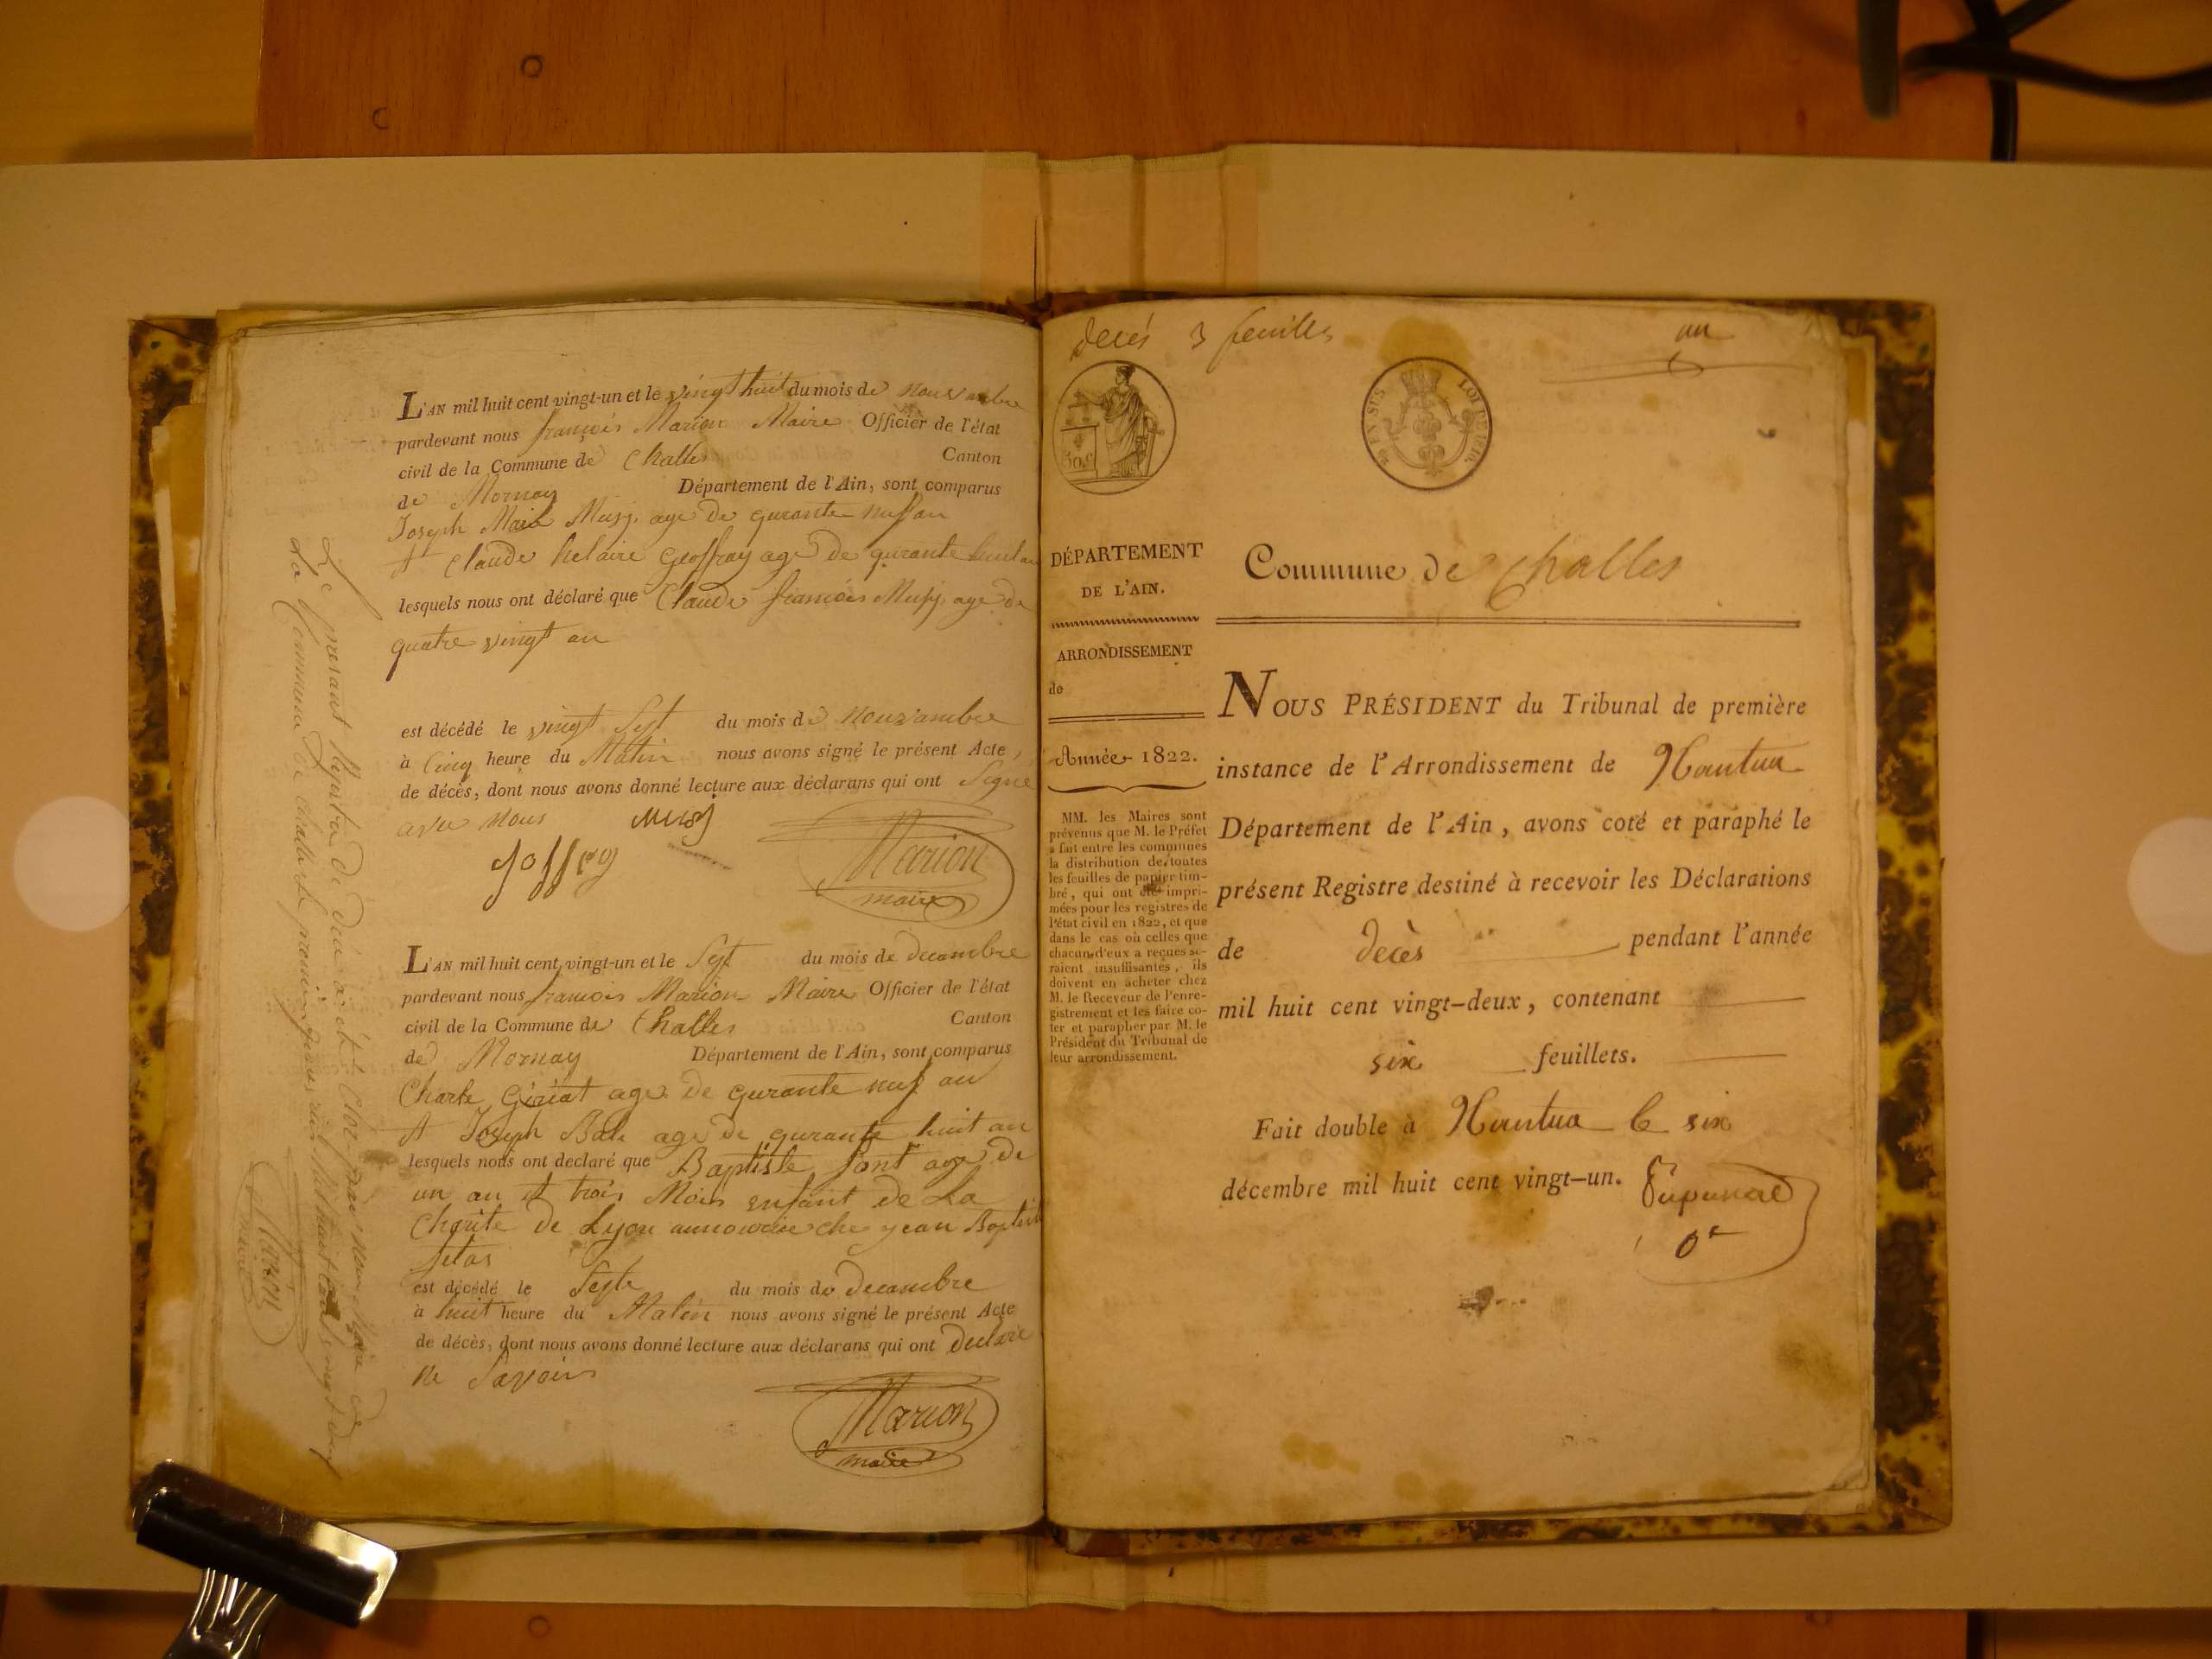 L'AN mil huit cent vingt-un et le vingt huit du mois de Nouvambre
pardevant nous françois Marion Maire Officier de l'état
civil de la Commune de Challes Canton
de Mornay Département de l'Ain, sont comparus
Joseph Marie age de quranter nuf an
et Claude helaire Geoffray age de qurante huit an
lesquels nous ont déclaré que Claude francois age de
quatre vingt an
est décédé le vingt Sept du mois de Nouvambre
à Cinq heure du Matin nous avons signé le présent Acte,
de décès, dont nous avons donné lecture aux déclarans qui ont Signé
avec nous
joffrey
Marion
maire
L'AN mil huit cent vingt-un et le Sept du mois de decambre
pardevant nous francois Marion Maire Officier de l'état
civil de la Commune de Challes Canton
de Mornay Département de l'Ain, sont comparus
Charle Giriat age de qurante nuf an
et Joseph age de qurante huit an
lesquels nous ont declaré que Baptiste font age de
un an et trois Mois enfant de La
Charite de Lyon che jean Baptiste
est décédé le Septe du mois de decambre
à huit heure du Matin nous avons signé le présent Acte
de décès, dont nous avons donné lecture aux déclarans qui ont declaré
ne Savoir
Marion
maire
Le presant de a été Clos par nous Maire de
La Commune de Challes le premier janvier mil huit cent vingt deux
Marion
maire
decés 3 feuilles
un
DÉPARTEMENT
DE L'AIN.
ARRONDISSEMENT
de
Année 1822.
MM. les Maires sont
prévenus que M. le Préfet
a fait entre les communes
la distribution de toutes
les feuilles de papier tim-
bré, qui ont été impri-
mées pour les registres de
l'état civil en 1822, et que
dans le cas où celles que
chacun d'eux a reçues se-
raient insuffisantes, ils
doivent en acheter chez
M. le Receveur de l'enre-
gistrement et les faire co-
ter et parapher par M. le
Président du Tribunal de
leur arrondissement.
Commune de Challes
NOUS PRÉSIDENT du Tribunal de première
instance de l'Arrondissement de Nantua
Département de l'Ain, avons coté et paraphé le
présent Registre destiné à recevoir les Déclarations
de decès pendant l'année
mil huit cent vingt-deux, contenant
six feuillets.
Fait double à Nantua le six
décembre mil huit cent vingt-un.